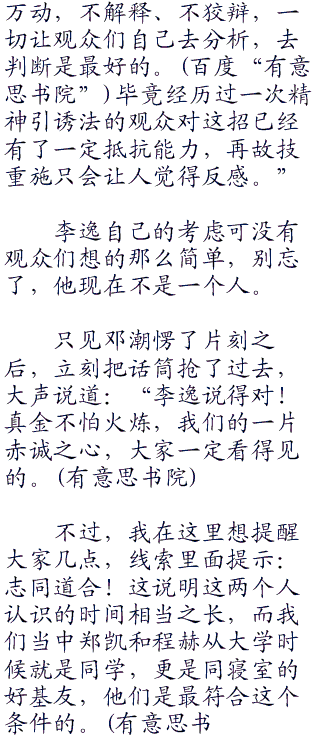 万动，不解释、不狡辩，一
切让观众们自己去分析，去
判断是最好的。(百度“有意
思书院”)毕竟经历过一次精
神引诱法的观众对这招已经
有了一定抵抗能力，再故技
重施只会让人觉得反感。”
李逸自己的考虑可没有
观众们想的那么简单，别忘
了，他现在不是一个人。
只见邓潮愣了片刻之
后，立刻把话筒抢了过去，
大声说道：“李逸说得对！
真金不怕火炼，我们的一片
赤诚之心，大家一定看得见
的。(有意思书院)
不过，我在这里想提醒
大家几点，线索里面提示：
志同道合！这说明这两个人
认识的时间相当之长，而我
们当中郑凯和程赫从大学时
候就是同学，更是同寝室的
好基友，他们是最符合这个
条件的。(有意思书